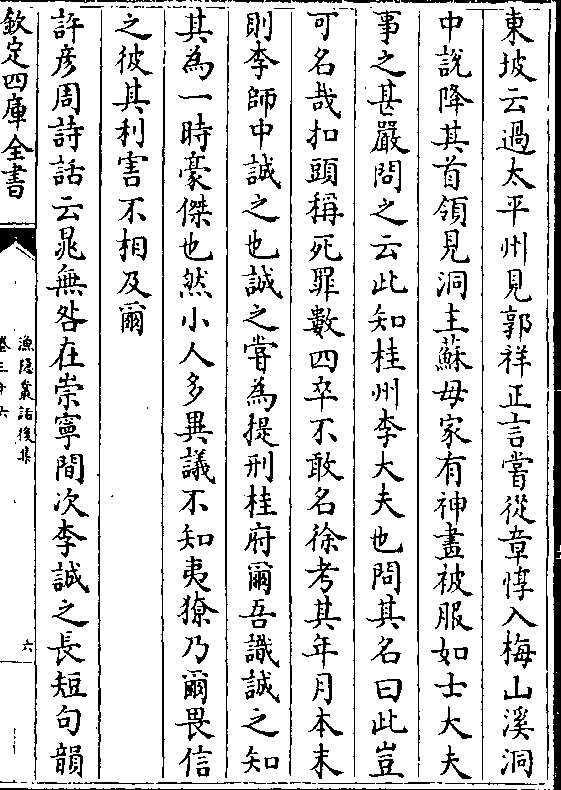 東坡云過太平州見郭祥正言嘗從章惇入梅山溪洞
中説降其首領見洞主蘇母家有神畫被服如士大夫
事之甚嚴問之云此知桂州李大夫也問其名曰此豈
可名哉扣頭稱死罪數四卒不敢名徐考其年月本末
則李師中誠之也誠之嘗為提刑桂府爾吾識誠之知
其為一時豪傑也然小人多異議不知夷獠乃爾畏信
之彼其利害不相及爾
許彦周詩話云晁無咎在崇寧間次李誠之長短句韻
欽定四庫全書
漁隠叢話後集
卷三十六
六